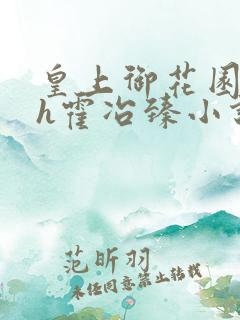 皇上御花园
h霍冶臻小
范昕羽
未经同意禁止转载